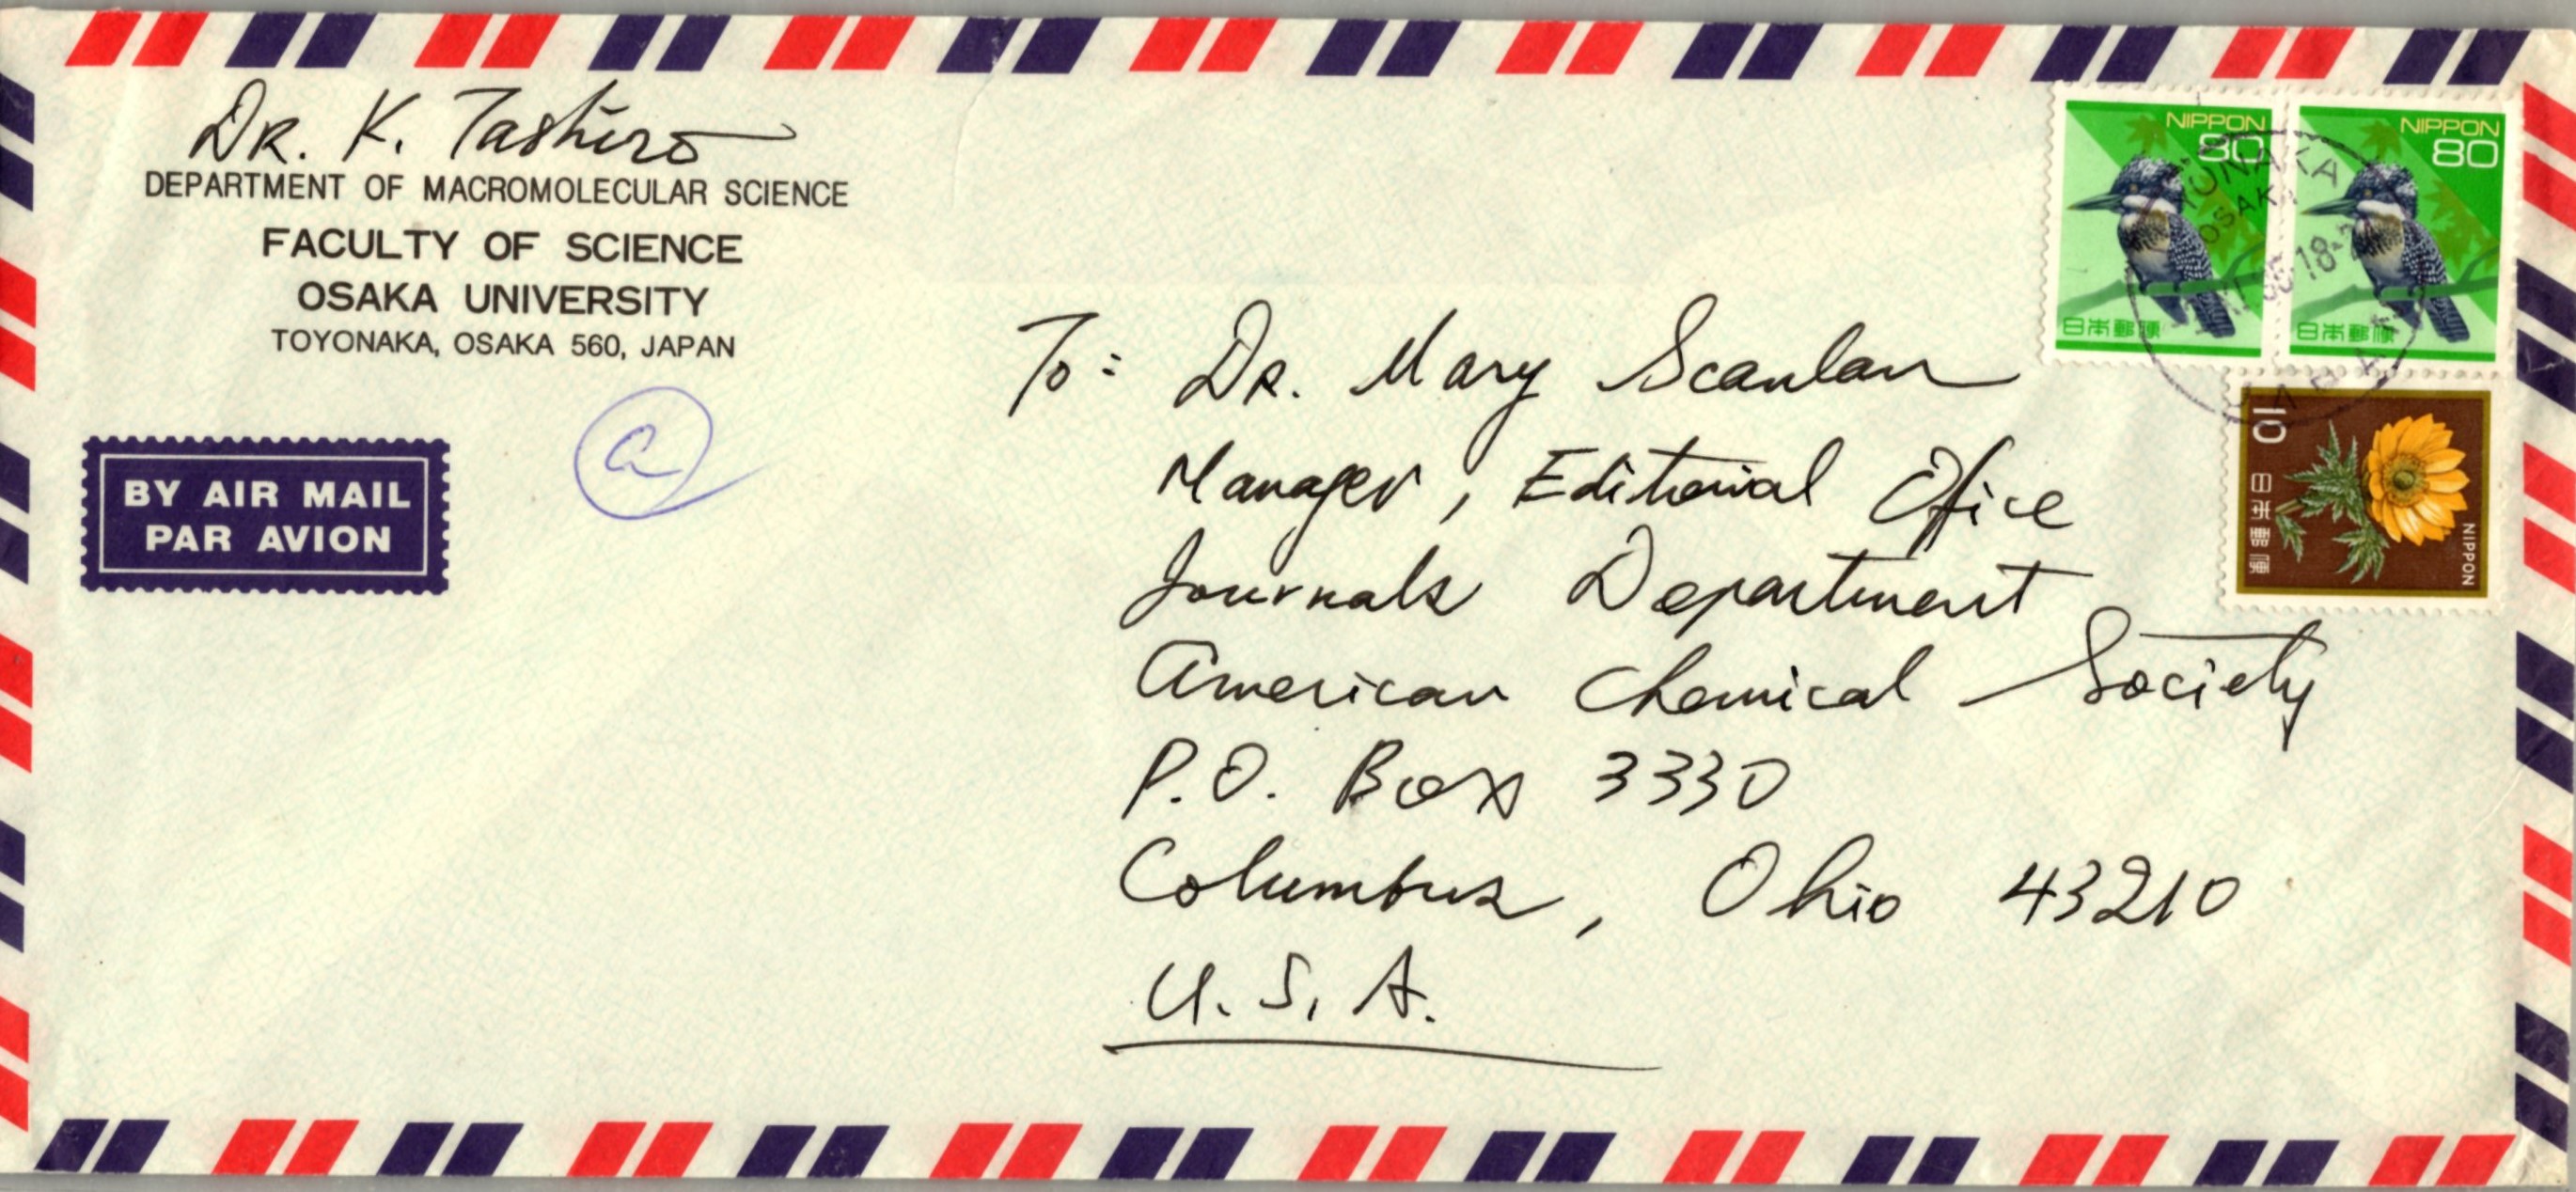 DR. K. Tashiro
DEPARTMENT OF MACROMOLECULAR SCIENCE
FACULTY OF SCIENCE
OSAKA UNIVERSITY
TOYONAKA, OSAKA 560, JAPAN
BY AIR MAIL
PAR AVION
a
NIPPON
80
日本郵便
NIPPON
80
日本郵便
10
日本郵便
NIPPON
OSAKA
JAPAN
To: DR. Mary Scanlan
Manager, Editorial Office
Journals Department
American Chemical Society
P.O. Box 3330
Columbus, Ohio 43210
U.S.A.